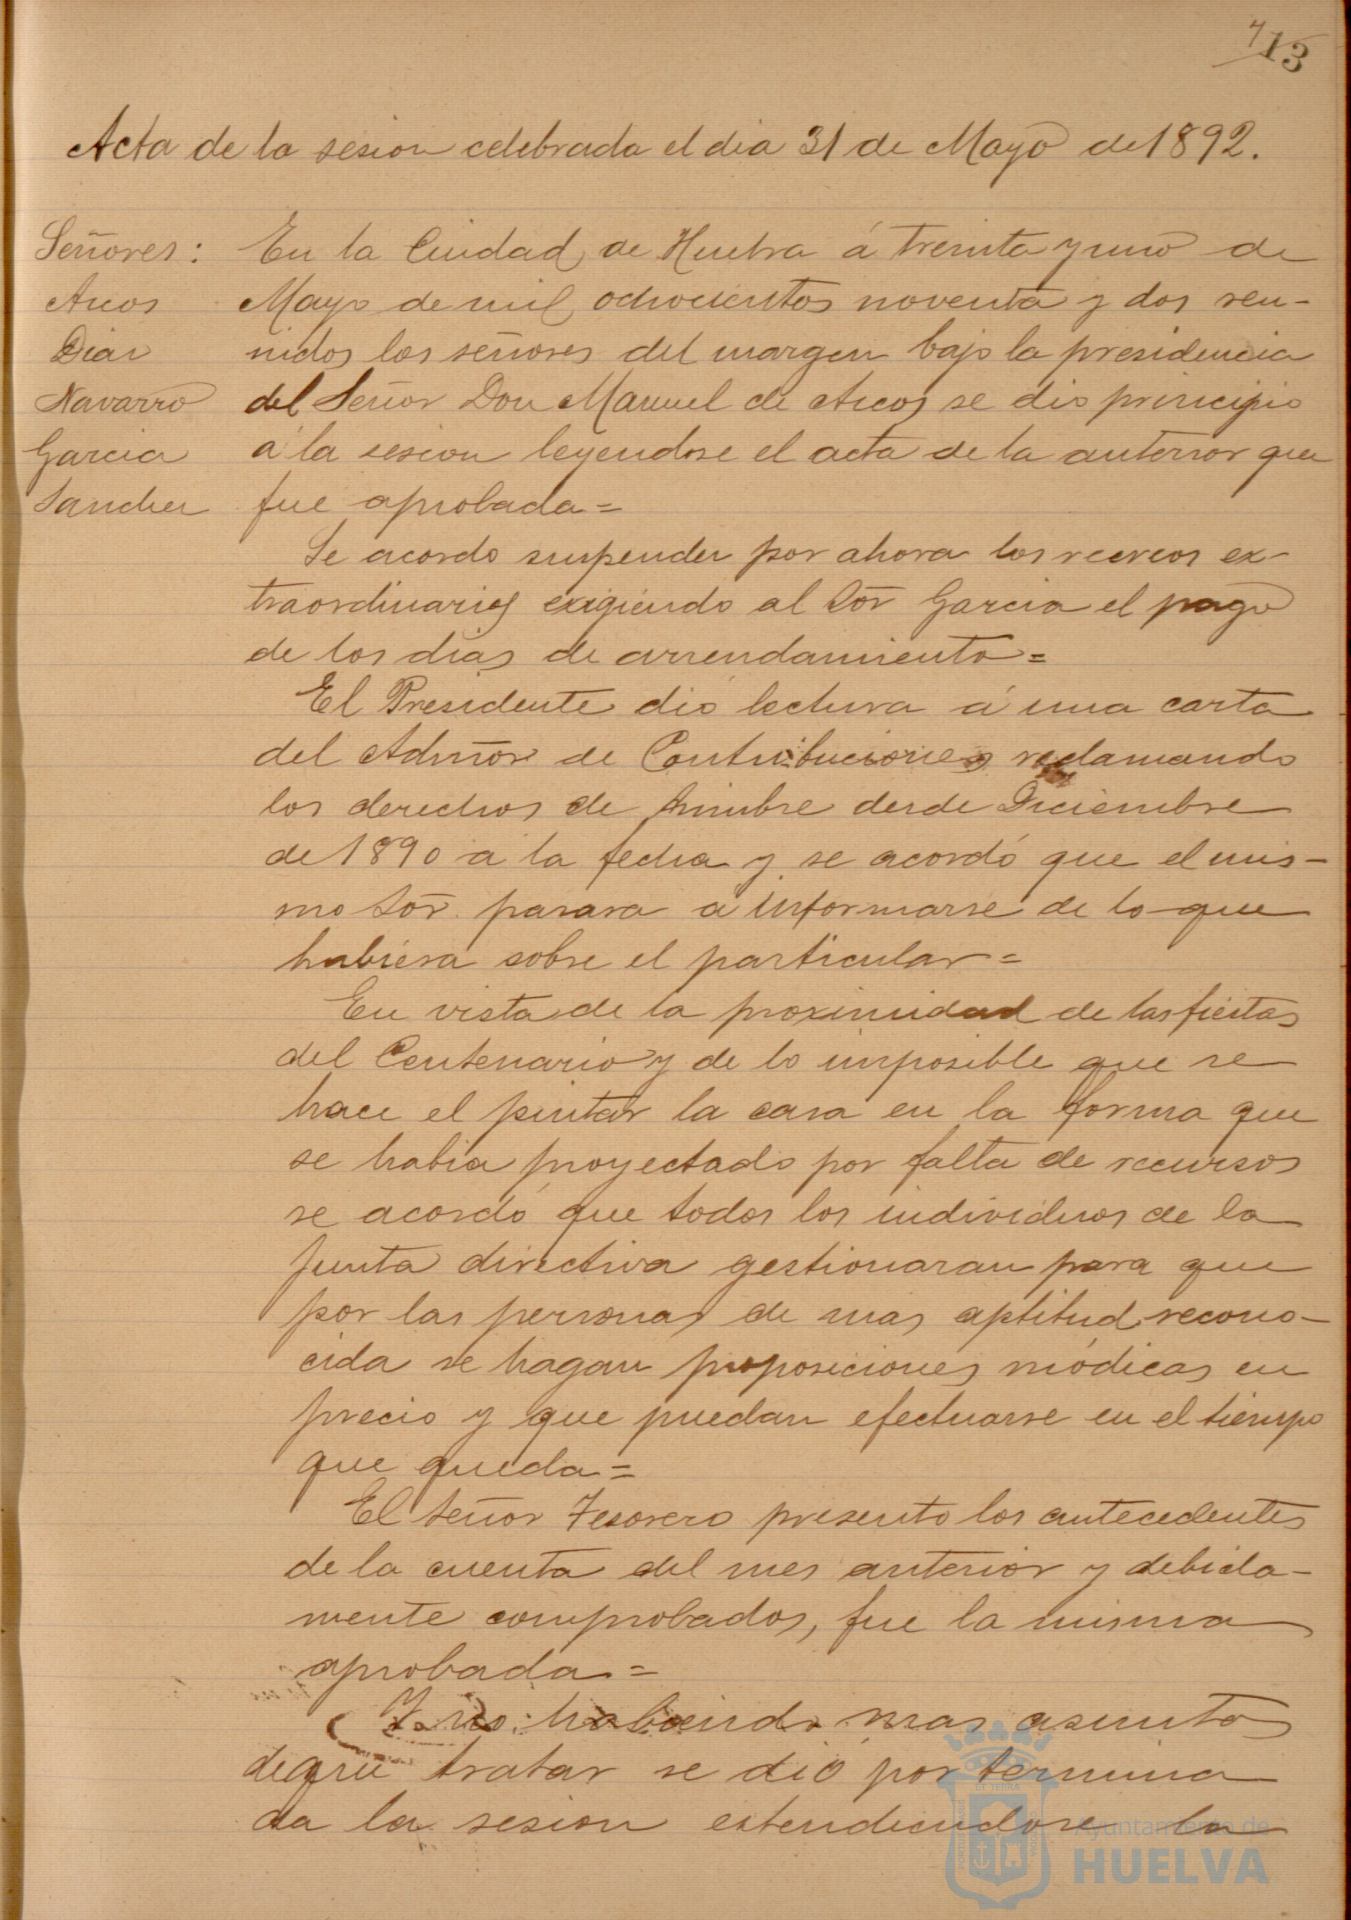 7 13
Acta de la sesion celebrada el dia 31 de Mayo de 1892.
Señores:
Arcos
Diaz
Navarro
Garcia
Sanchez
En la Ciudad de Huelva á treinta y uno de
Mayo de mil ochocientos noventa y dos reu-
nidos los señores del margen bajo la presidencia
del Señor Don Manuel de Arcos se dió principio
á la sesion leyendose el acta de la anterior que
fue aprobada=
Se acordo suspender por ahora los recreos ex-
traordinarios exigiendo al Sōr Garcia el pago
de los dias de arrendamiento=
El Presidente dió lectura á una carta
del Admōr de Contribuciones reclamando
los derechos de timbre desde Diciembre
de 1890 a la fecha y se acordó que el mis-
mo Sōr. pasara a informarse de lo que
hubiera sobre el particular=
En vista de la proximidad de las fiestas
del Centenario y de lo imposible que se
hace el pintar la casa en la forma que
se habia proyectado por falta de recursos
se acordó que todos los individuos de la
Junta directiva gestionaran para que
por las personas de mas aptitud recono-
cida se hagan proposiciones módicas en
precio y que puedan efectuarse en el tiempo
que queda=
El Señor Tesorero presento los antecedentes
de la cuenta del mes anterior y debida-
mente comprobados, fue la misma
aprobada=
Y no habiendo mas asuntos
de que tratar se dió por termina
da la sesion estendiendose la
Ayuntamiento de
HUELVA